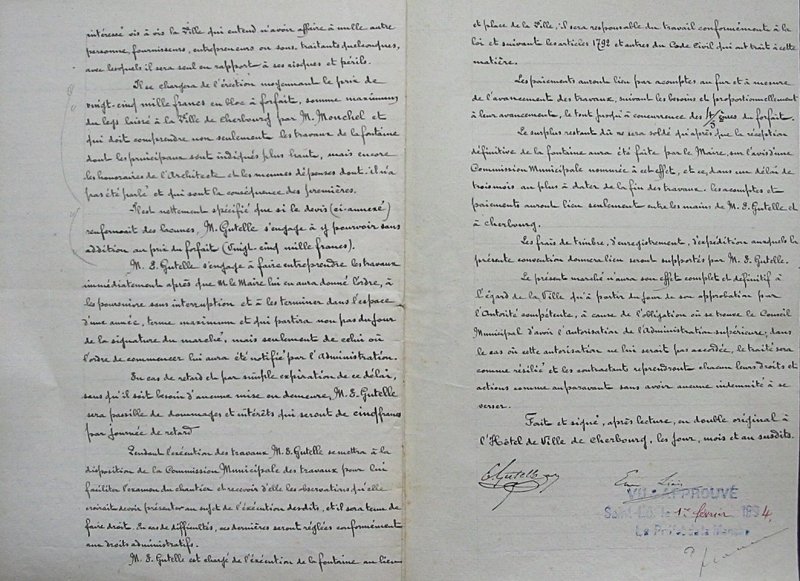 intéressé vis à vis la Ville qui entend n'avoir affaire à mille autre
personne, fournisseurs, entrepreneurs ou sous-traitants quelconques,
avec lesquels il sera seul en rapport à ses risques et périls.
Il se chargera de l'érection moyennant le prix de
vingt-cinq mille francs en bloc à forfait, somme maximum
du legs laissé à la Ville de Cherbourg par M. Mouchel et
qui doit comprendre non seulement les travaux de la fontaine
dont les principaux sont indiqués plus haut, mais encore
les honoraires de l'Architecte et les menues dépenses dont il n'a
pas été parlé et qui sont la conséquence des premières.
Il est nettement spécifié que si le devis (ci-annexé)
renfermait des lacunes, M. Gutelle s'engage à y pourvoir sans
addition au prix du forfait (Vingt-cinq mille francs).
M. E. Gutelle s'engage à faire entreprendre les travaux
immédiatement après que M. le Maire lui en aura donné l'ordre, à
les poursuivre sans interruption et à les terminer dans l'espace
d'une année, terme maximum et qui partira non pas du jour
de la signature du marché, mais seulement de celui où
l'ordre de commencer lui aura été notifié par l'Administration.
En cas de retard et par simple expiration de ce délai,
sans qu'il soit besoin d'aucune mise en demeure, M. E. Gutelle
sera passible de dommages et intérêts qui seront de cinq francs
par journée de retard
Pendant l'exécution des travaux M. E. Gutelle se mettra à la
disposition de la Commission Municipale des travaux pour lui
faciliter l'examen du chantier et recevoir d'elle les observations qu'elle
croirait devoir présenter au sujet de l'exécution desdits, et il sera tenu de
faire droit. En cas de difficultés, ces dernières seront réglées conformément
aux droits administratifs.
M. E. Gutelle est chargé de l'exécution de la fontaine au lieu
et place de la Ville, il sera responsable du travail conformément à la
loi et suivant les articles 1792 et autres du Code Civil qui ont trait à cette
matière.
Les paiements auront lieu par acomptes au fur et à mesure
de l'avancement des travaux, suivant les besoins et proportionnellement
à leur avancement, le tout jusqu'à concurrence des 4/5èmes du forfait.
Le surplus restant dû ne sera soldé qu'après que la réception
définitive de la fontaine aura été faite par le Maire, sur l'avis d'une
Commission Municipale nommée à cet effet, et ce, dans un délai de
trois mois au plus à dater de la fin des travaux. Les acomptes et
paiements auront lieu seulement entre les mains de M. E. Gutelle et
à Cherbourg.
Les frais de timbre, d'enregistrement, d'expédition auxquels la
présente convention donnera lieu seront supportés par M. E. Gutelle.
Le présent marché n'aura son effet complet et définitif à
l'égard de la Ville qu'à partir du jour de son approbation par
l'Autorité compétente, à cause de l'obligation où se trouve le Conseil
Municipal d'avoir l'autorisation de l'Administration supérieure; dans
le cas où cette autorisation ne lui serait pas accordée, le traité sera
comme résilié et les contractants reprendront chacun leurs droits et
actions comme auparavant sans avoir aucune indemnité à se
verser.
Fait et signé, après lecture, en double original à
l'Hôtel de Ville de Cherbourg, les jour, mois et an susdits.
E. Gutelle
VU & APPROUVÉ
Saint-Lô, le 17 février 1894.
Le Préfet de la Manche